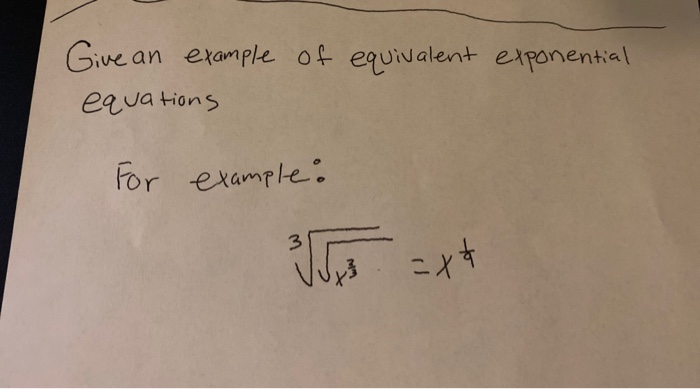 Give an example of equivalent exponential
equations
For example:
∛√x^(2/3) = x^(1/9)